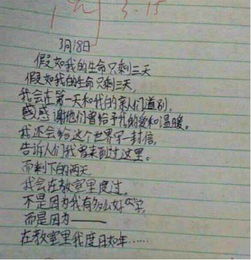 3.15
3月18日
假如我的生命只剩三天
假如我的生命只剩三天,
我会在第一天和我的家人们道别,
感谢他们曾给予我的爱和温暖。
我还会给这个世界写一封信,
告诉人们我曾来到过这里。
而剩下的两天
我会在教室里度过。
不是因为我有多么好学,
而是因为——
在教室里我度日如年……